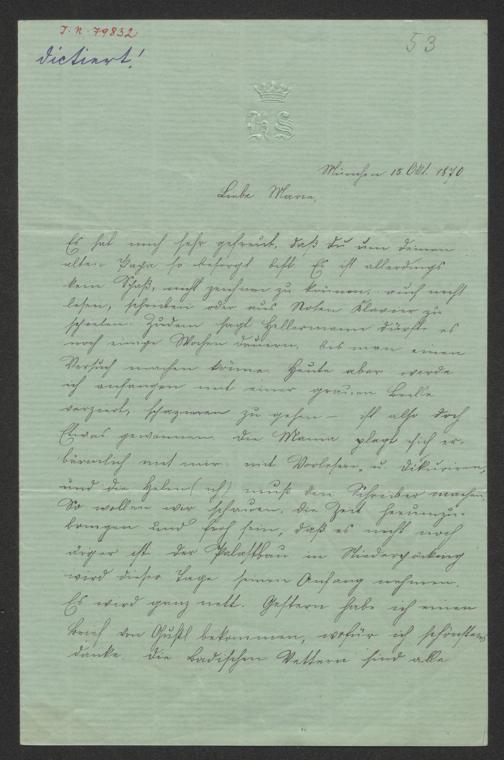 I. N. 79832
53
dictiert!
KS
München 18 Okt. 1870
Liebe Marie,
Es hat mich sehr gefreut, daß du um deinen
alten Papa so besorgt bist. Es ist allerdings
kein Spaß, nicht zeichnen zu können, auch nicht
lesen, schreiben oder aus Noten Klavier zu
spielen. Zudem sagt Hellermann dürfte es
noch einige Wochen dauern, bis man einen
Versuch machen könne. Heute aber werde
ich anfangen mit einer grauen Brille
verziert, spazieren zu gehen – ist also doch
Etwas gewonnen. Die Mama plagt sich er-
bärmlich mit mir mit Vorlesen, u. dikieren,
und die Helen (ich) muß den Schreiber machen.
So wollen wir schauen, die Zeit herumzu-
bringen und froh sein, daß es nicht noch
ärger ist. Der Palastbau in Niederpöcking
wird dieser Tage seinen Anfang nehmen.
Es wird ganz nett. Gestern habe ich einen
Brief von Gustl bekommen, wofür ich schönstens
danke. Die badischen Vettern sind alle